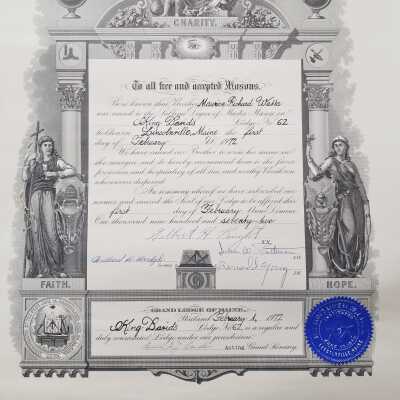 CHARITY.
To all free and accepted Masons.
Be it known that Brother Maurice Richard
was raised to the Sublime Degree of Master Mason in
King Davids Lodge No 62
holden in Lincolnville, Maine the first
day of February 1972
We have caused our Brother to sign his name in
the margin and do hereby recommend him to the favor
protection and hospitality of all free and worthy Brethren
wheresoever dispersed
In testimony whereof we have subscribed our
names and caused the Seal of our Lodge to be affixed this
first day of February Anno Domini
One thousand nine hundred and seventy-two
FAITH.
HOPE.
GRAND LODGE OF MAINE.
Portland February 1, 1972
King Davids Lodge No 62 is a regular and
duly constituted Lodge under our jurisdiction.
Acting Grand Secretary
LINCOLNVILLE MAINE